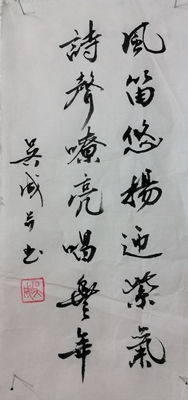 風笛悠揚迎紫氣
詩聲嘹亮唱豐年
吳成書